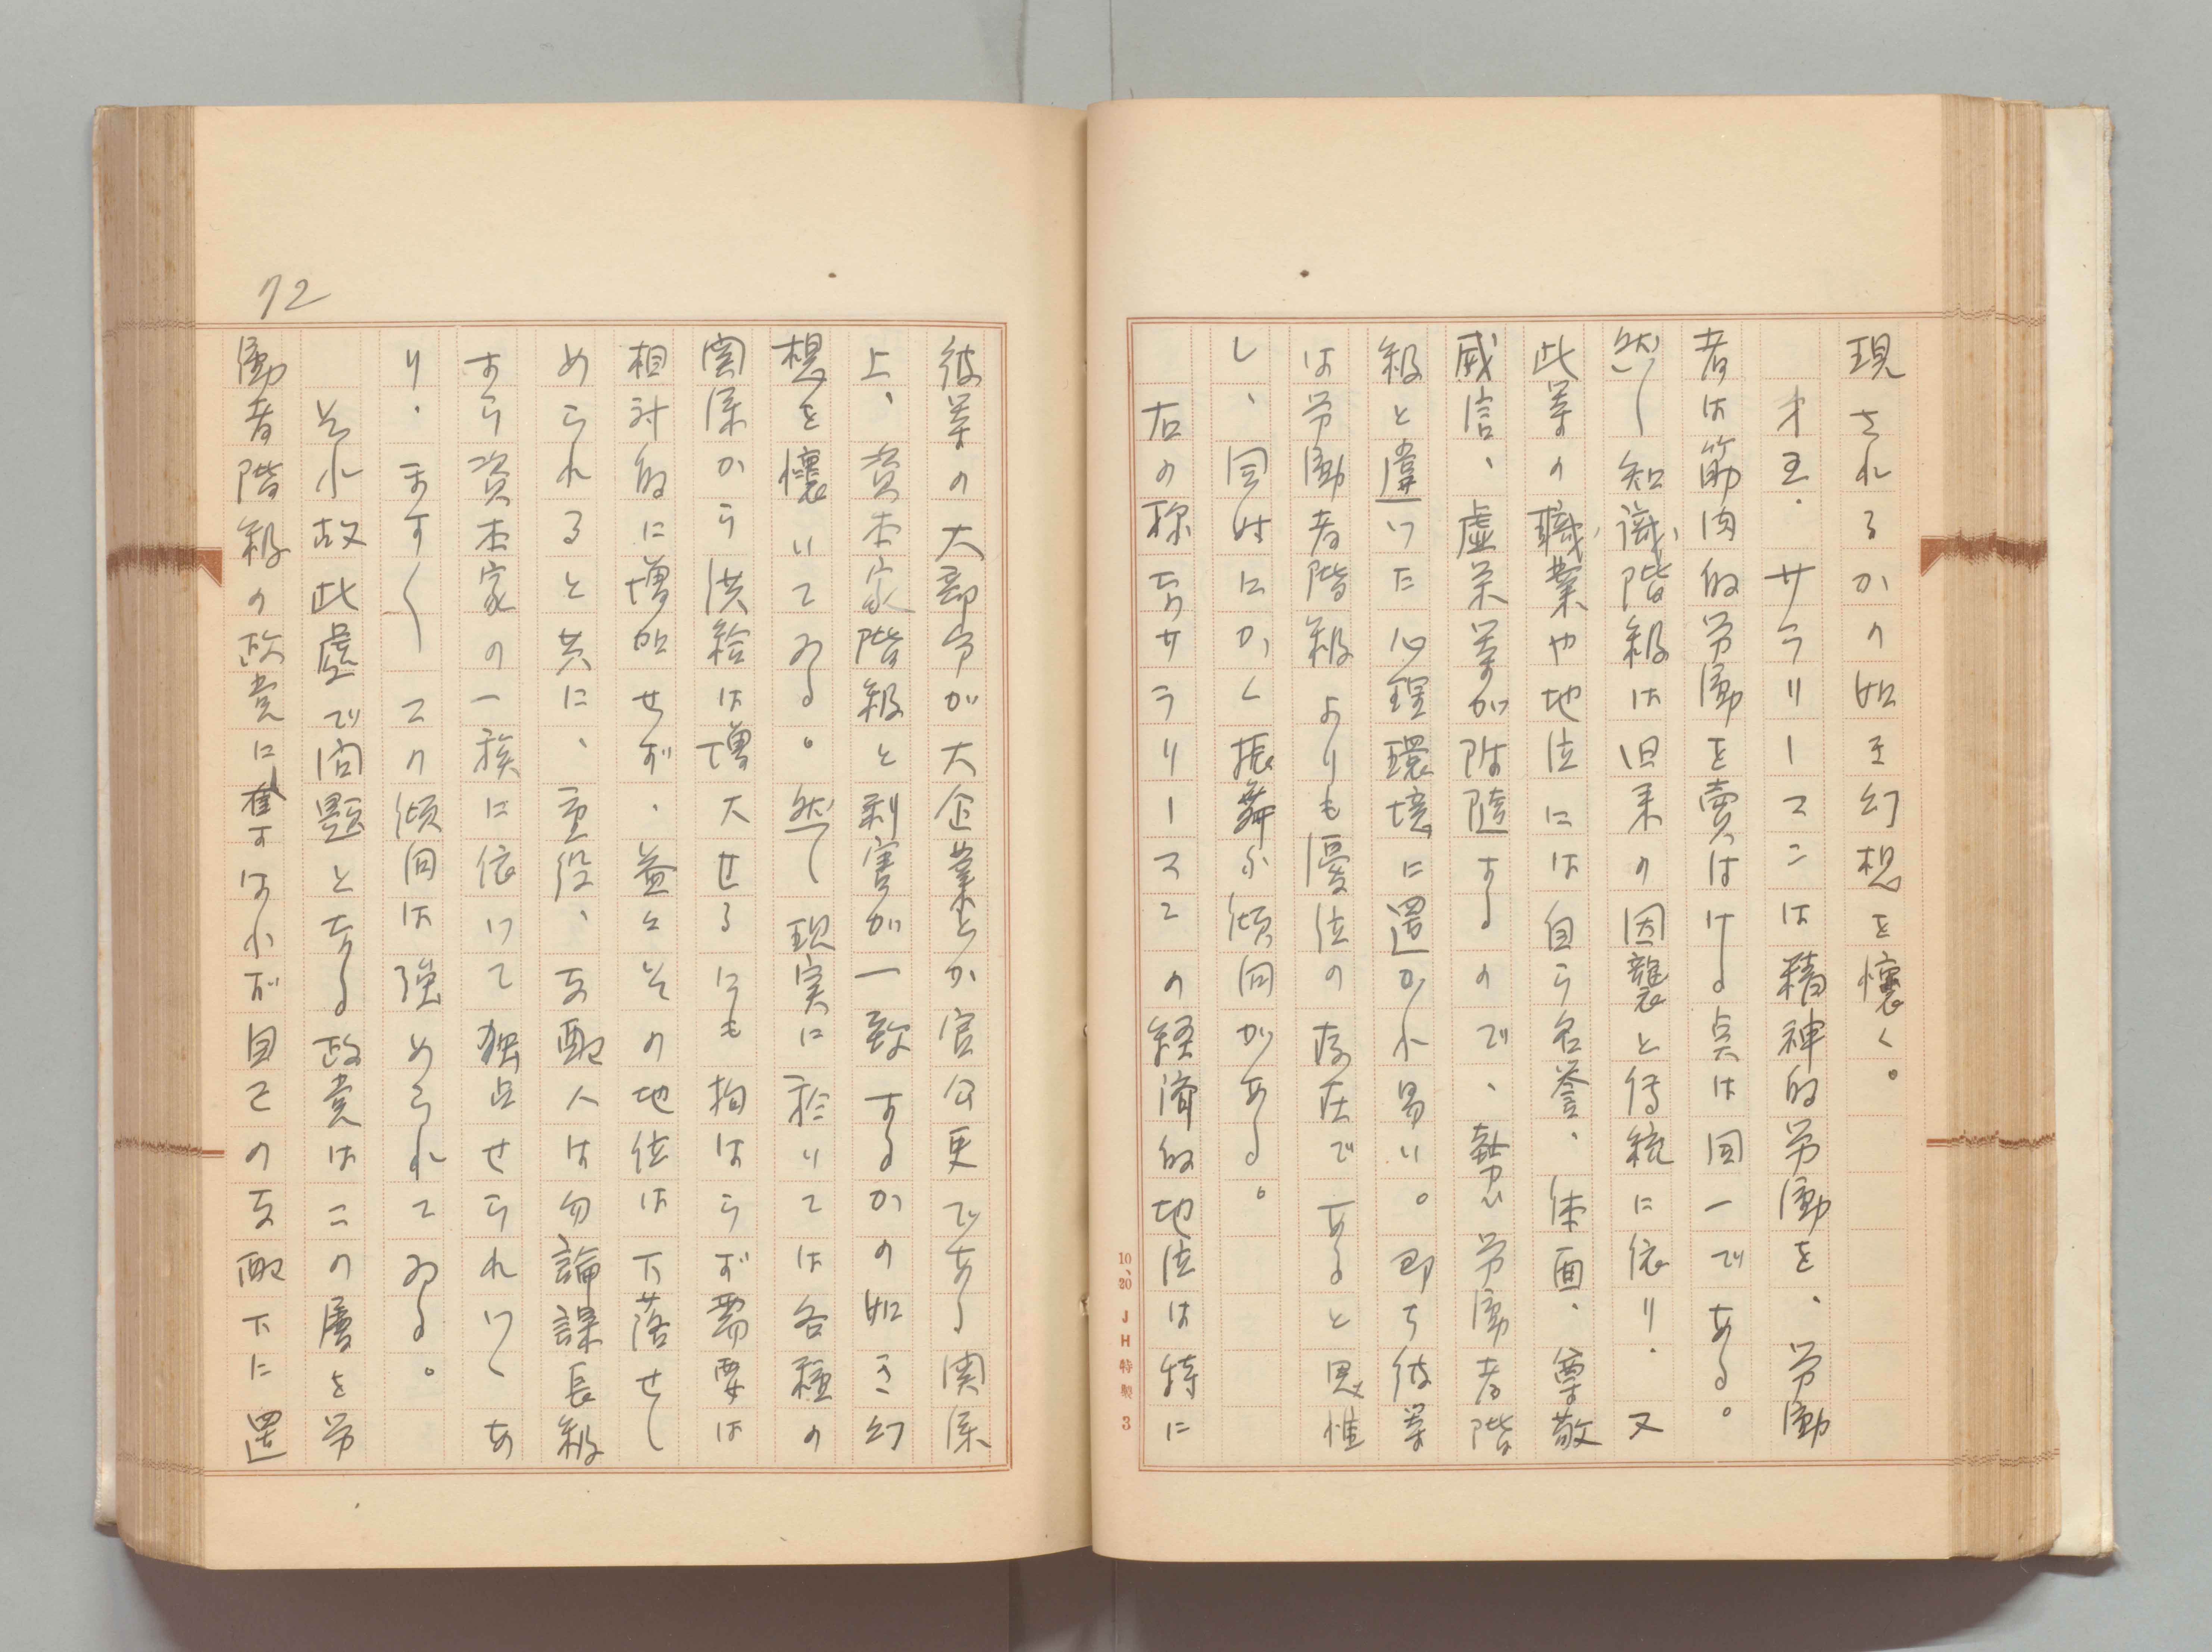 現されるかの如き幻想を懐く。
才五、サラリーマンは精神的労働を、労働
者は筋肉的労働を売はける点は同一である。
然し知識階級は旧来の因襲と傳統に依り、又
此等の職業や地位には自ら名誉、体面、尊敬
威信、虚栄等が附随するので、勢ひ労働者階
級と違いた心理環境に置かれ易い。即ち彼等
は労働者階級よりも優位の存在であると思惟
し、同時にかく振舞ふ傾向がある。
右の称なサラリーマンの経済的地位は特に
10、20 JH特製 3
72
彼等の大部分が大企業とか官公吏である関係
上、資本家階級と利害が一致するかの如き幻
想を懐いてゐる。然し現実に於いては各種の
関係から洪給は増大せるにも拘はらず需要は
相対的に増加せず、益々その地位は下落せし
められると共に、重役、支配人は勿論課長級
すら資本家の一族に依つて独占せられつゝあ
り、ます〱この傾向は強められてゐる。
それ故此處で問題となる政党はこの層を労
働者階級の政党に奪すはれず自己の支配下に置